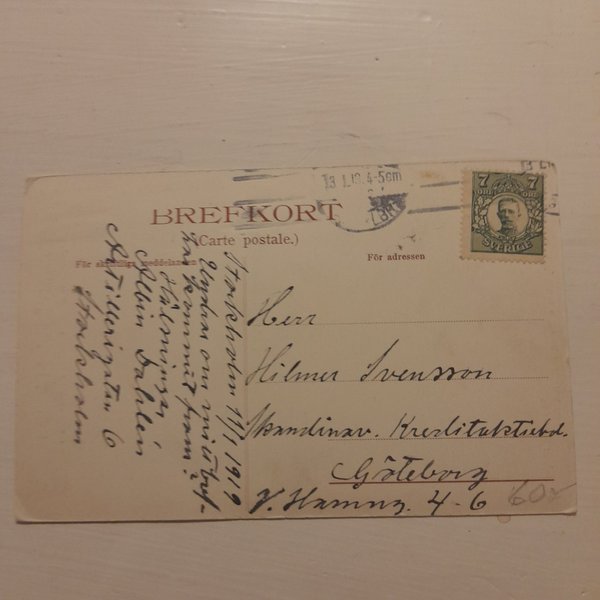 13.1.19.4-5em
7 7
SVERIGE
BREFKORT
(Carte postale.)
För skriftliga meddelanden
För adressen
Stockholm 17/1 1919
Undrar om mitt bref-
kommit fram?
Hälsningar
Albin Dahlén
Artillerigatan 6
Stockholm
Herr
Hilmer Svensson
Skandinav. Kreditaktiebol.
Göteborg
V. Hamng. 4-6
60:-